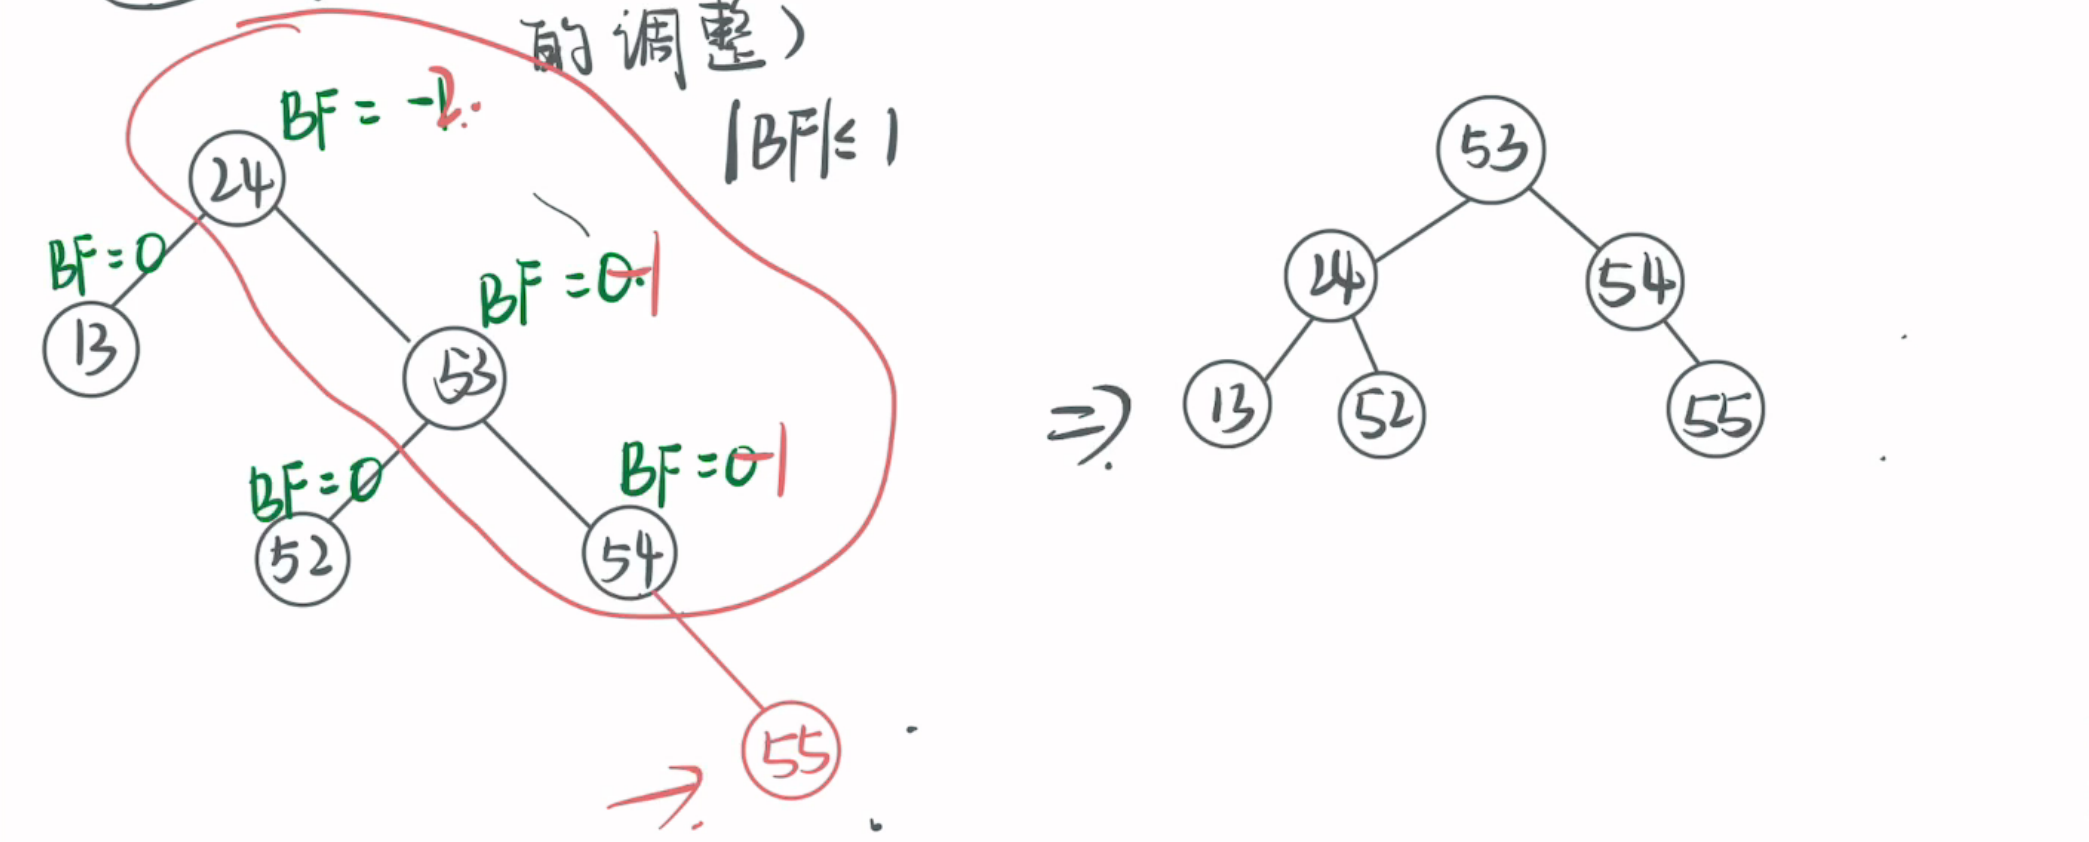 的调整）
BF = -2.
|BF| ≤ 1
24
BF=0
13
BF = -1
53
BF=0
52
BF = -1
54
55
⇒
53
24
54
13
52
55